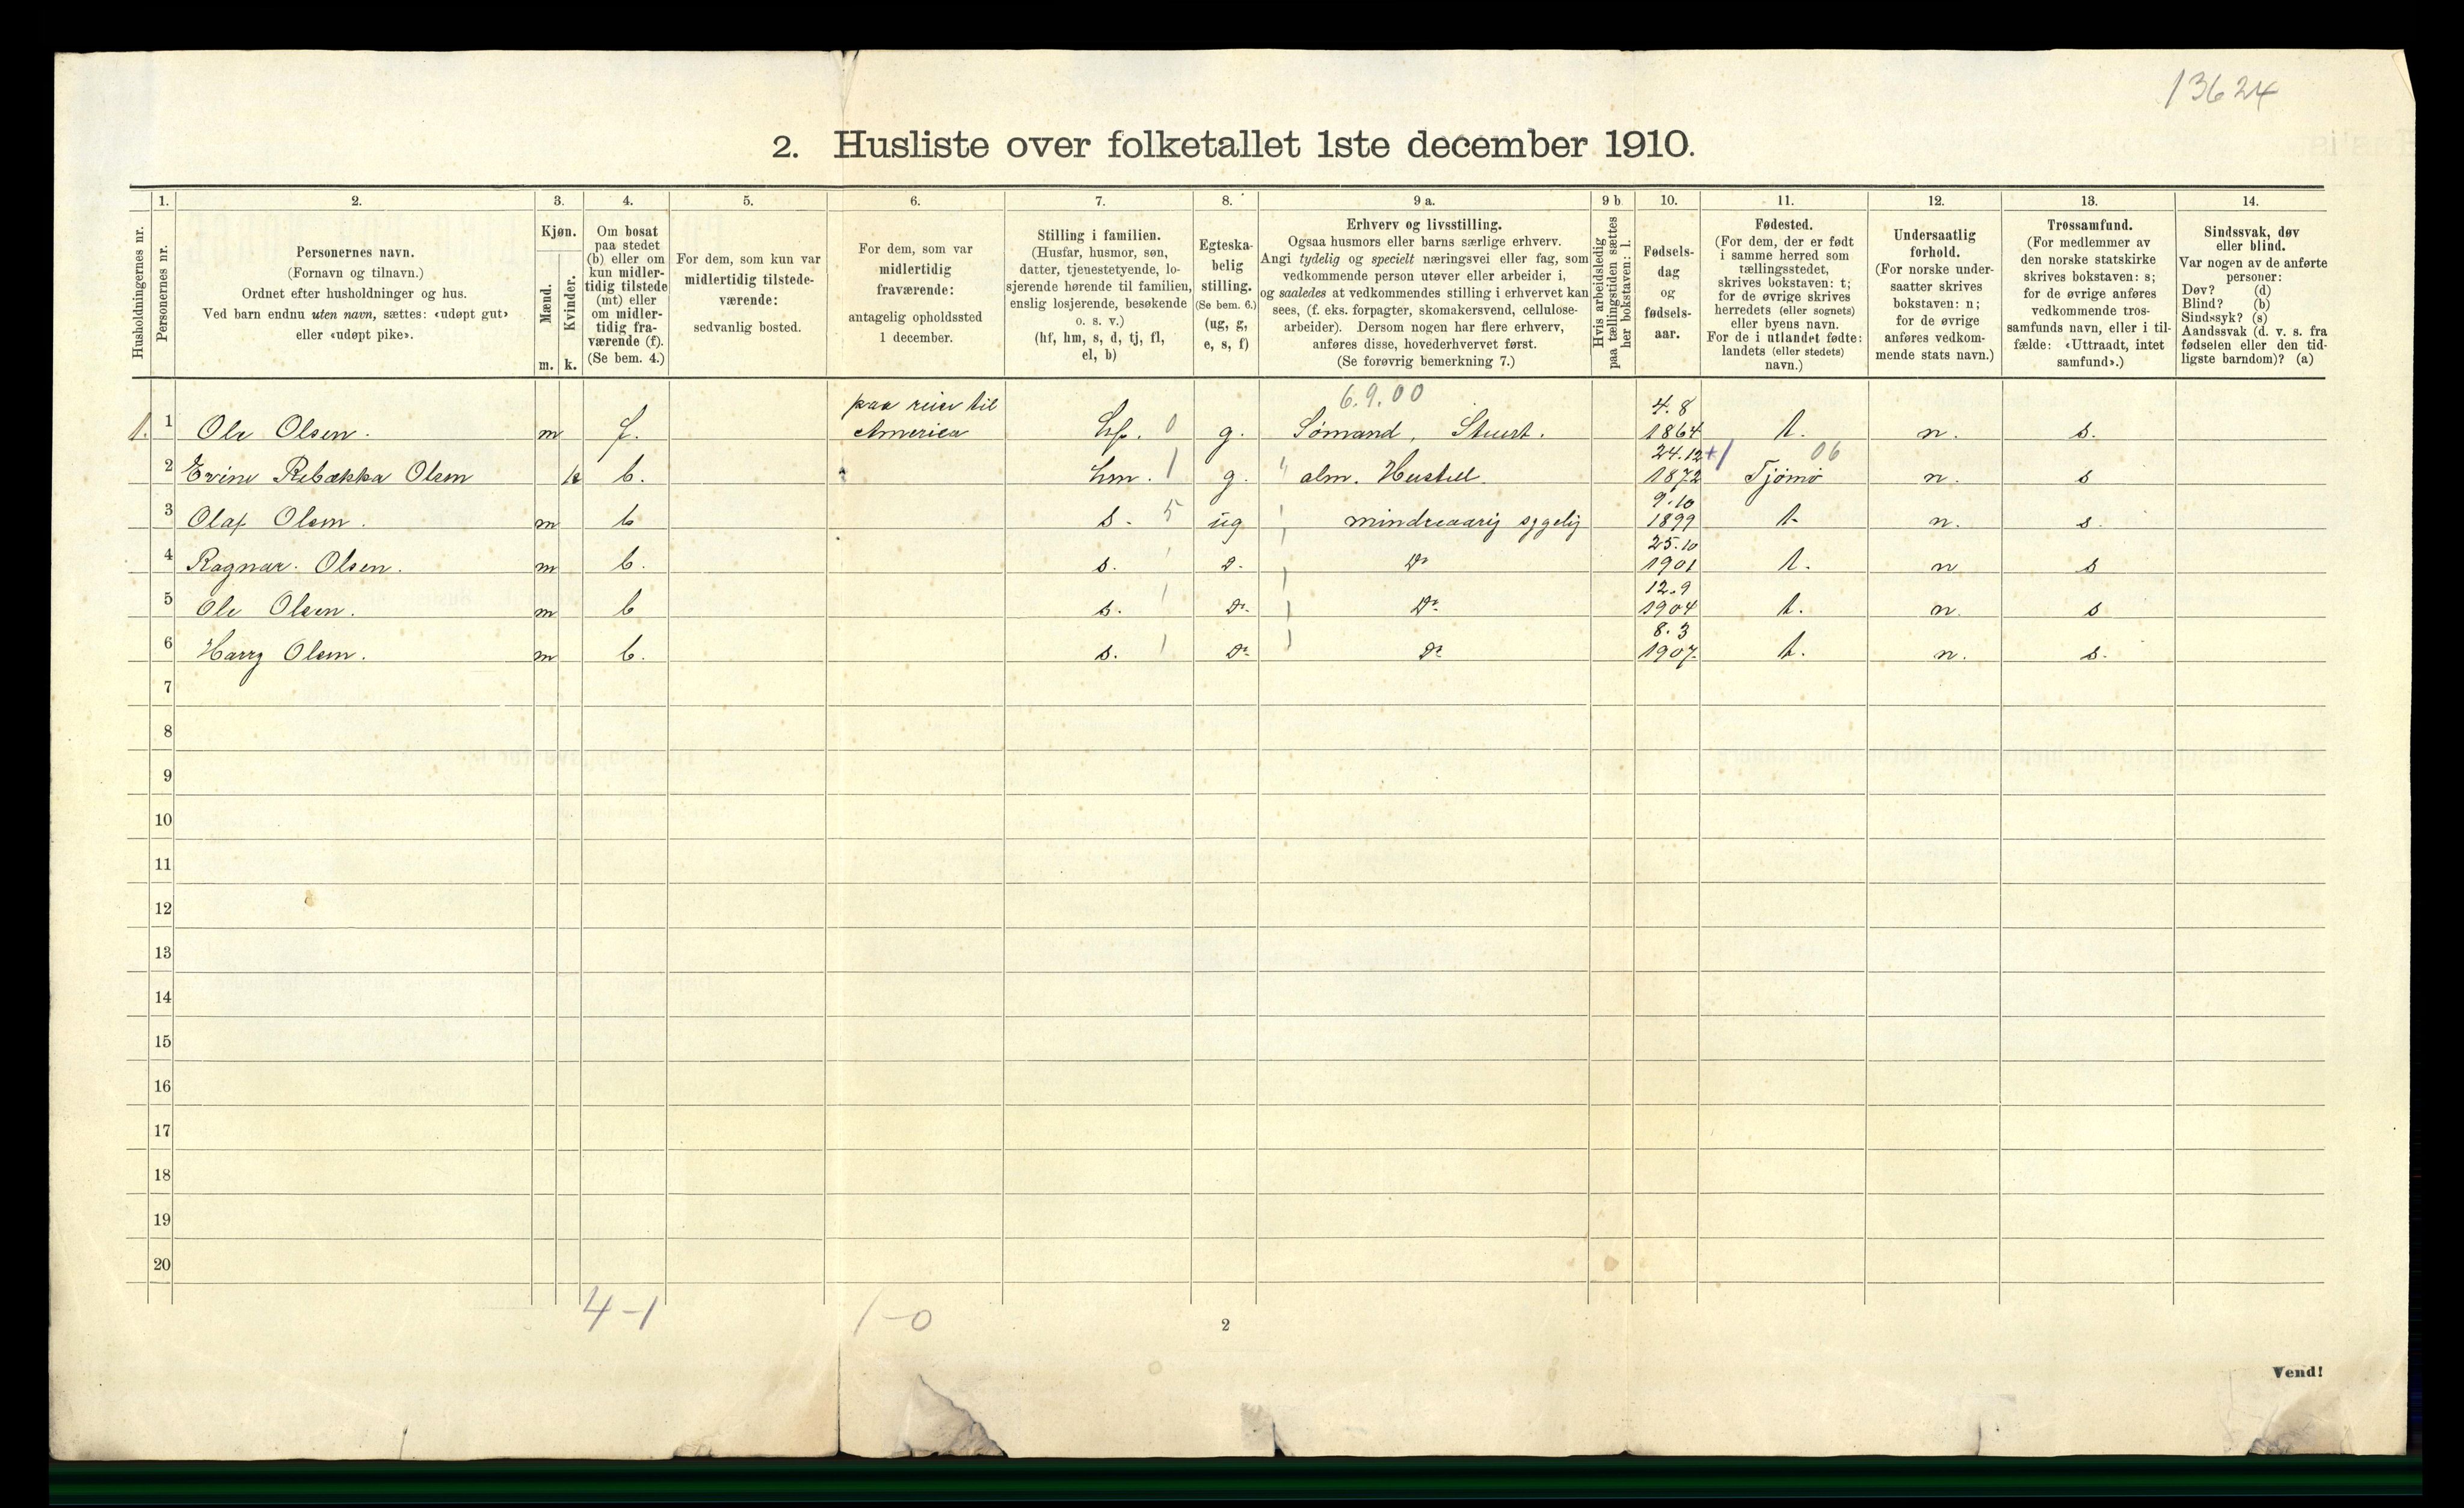 13624
2. Husliste over folketallet 1ste december 1910.
Husholdningernes nr.
1.
Personernes nr.
2.
Personernes navn.
(Fornavn og tilnavn.)
Ordnet efter husholdninger og hus.
Ved barn endnu uten navn, sættes: «udøpt gut»
eller «udøpt pike».
3.
Kjøn.
Mænd.
Kvinder.
m. k.
4.
Om bosat
paa stedet
(b) eller om
kun midler-
tidig tilstede
(mt) eller
om midler-
tidig fra-
værende (f).
(Se bem. 4.)
5.
For dem, som kun var
midlertidig tilstede-
værende:
sedvanlig bosted.
6.
For dem, som var
midlertidig
fraværende:
antagelig opholdssted
1 december.
7.
Stilling i familien.
(Husfar, husmor, søn,
datter, tjenestetyende, lo-
sjerende hørende til familien,
enslig losjerende, besøkende
o. s. v.)
(hf, hm, s, d, tj, fl,
el, b)
8.
Egteska-
belig
stilling.
(Se bem. 6.)
(ug, g,
e, s, f)
9 a.
Erhverv og livsstilling.
Ogsaa husmors eller barns særlige erhverv.
Angi tydelig og specielt næringsvei eller fag, som
vedkommende person utøver eller arbeider i,
og saaledes at vedkommendes stilling i erhvervet kan
sees, (f. eks. forpagter, skomakersvend, cellulose-
arbeider). Dersom nogen har flere erhverv,
anføres disse, hovederhvervet først.
(Se forøvrig bemerkning 7.)
9 b.
Hvis arbeidsledig
paa tællingstiden sættes
her bokstaven: l.
10.
Fødsels-
dag
og
fødsels-
aar.
11.
Fødested.
(For dem, der er født
i samme herred som
tællingsstedet,
skrives bokstaven: t;
for de øvrige skrives
herredets (eller sognets)
eller byens navn.
For de i utlandet fødte:
landets (eller stedets)
navn.)
12.
Undersaatlig
forhold.
(For norske under-
saatter skrives
bokstaven: n;
for de øvrige
anføres vedkom-
mende stats navn.)
13.
Trossamfund.
(For medlemmer av
den norske statskirke
skrives bokstaven: s;
for de øvrige anføres
vedkommende tros-
samfunds navn, eller i til-
fælde: «Uttraadt, intet
samfund».)
14.
Sindssvak, døv
eller blind.
Var nogen av de anførte
personer:
Døv? (d)
Blind? (b)
Sindssyk? (s)
Aandssvak (d. v. s. fra
fødselen eller den tid-
ligste barndom)? (a)
paa reise til 6.9.00 4.8
1. 1 Ole Olsen. m f. America hf. 0 g. Sømand, Stuert. 1864 t. n. s.
24.12 06
2 Evine Rebækka Olsen k b. hm. 1 g. alm. Husstell. 1872 Tjømø n. s
9.10
3 Olaf Olsen. m b s. 5 ug mindreaarig sygelig 1899 t. n. s.
25.10
4 Ragnar Olsen. m b. s. D. Do 1901 t. n s
12.9
5 Ole Olsen. m b s. Do Do 1904 t. n. s
8.3
6 Harry Olsen. m b. s. 1 Do Do 1907. t. n. s.
7
8
9
10
11
12
13
14
15
16
17
18
19
20
4-1 1-0
2
Vend!